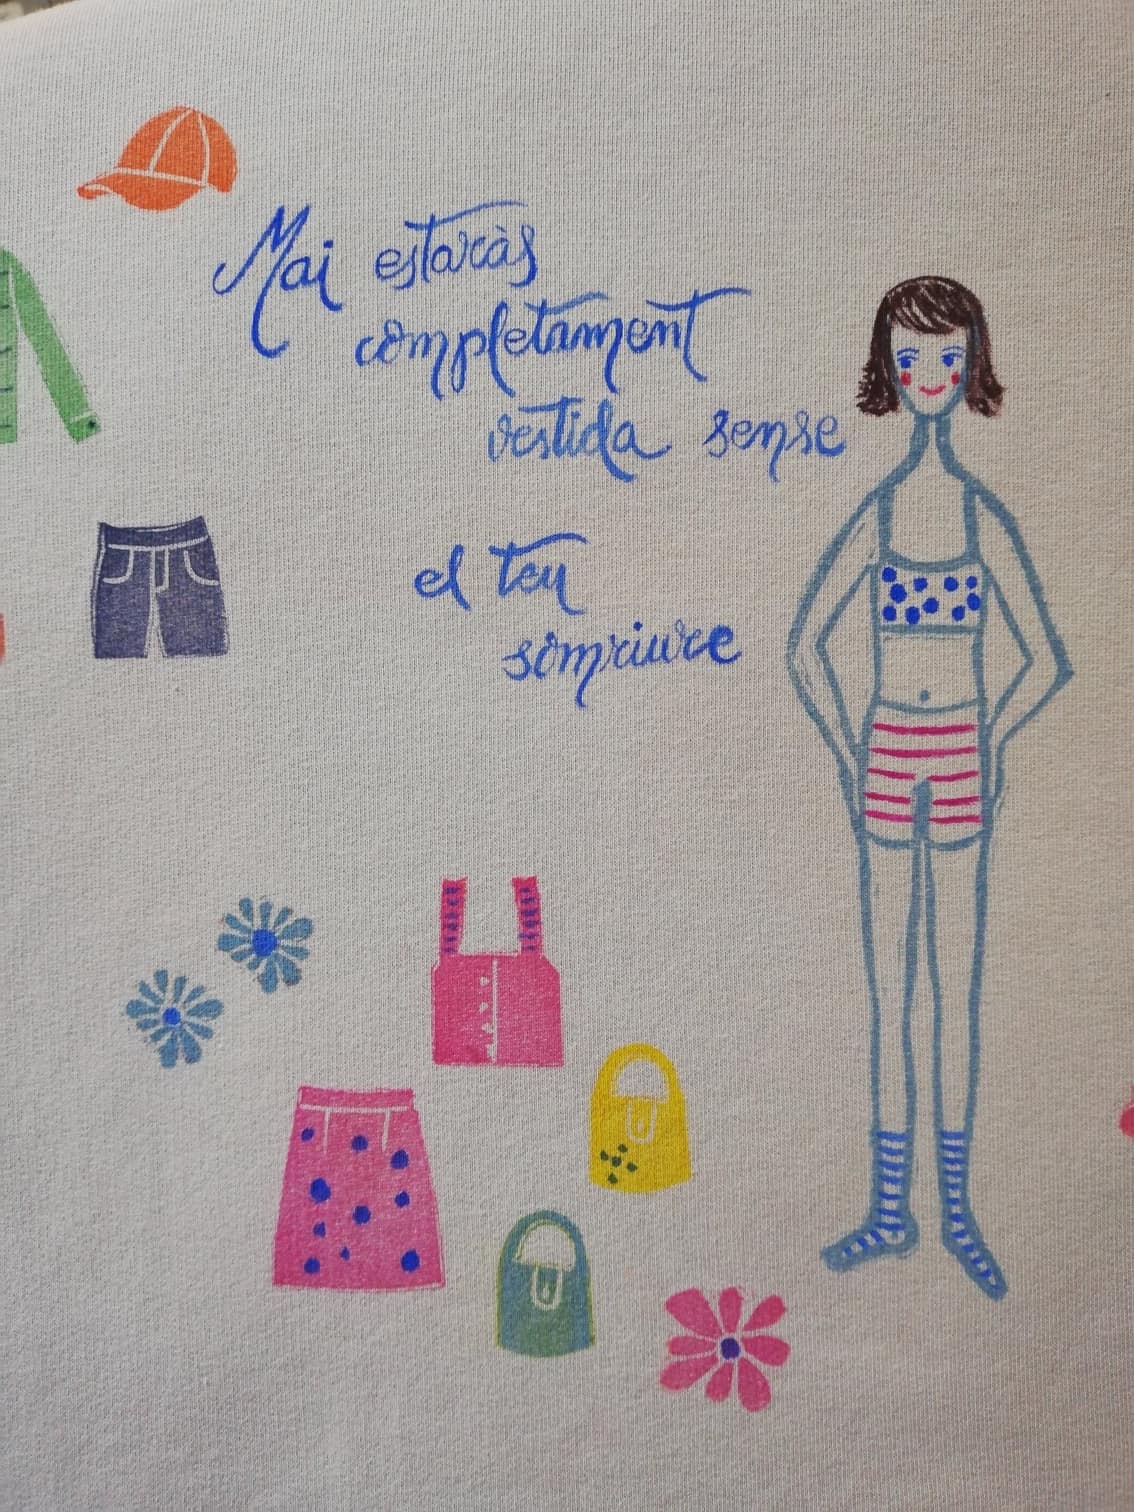 Mai estaràs
completament
vestida sense
el teu
somriure